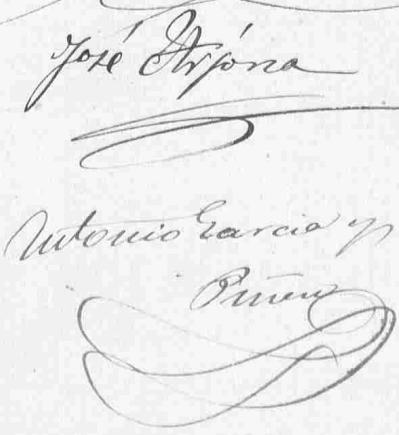 José Arjona
Antonio Garcia y
Piñero